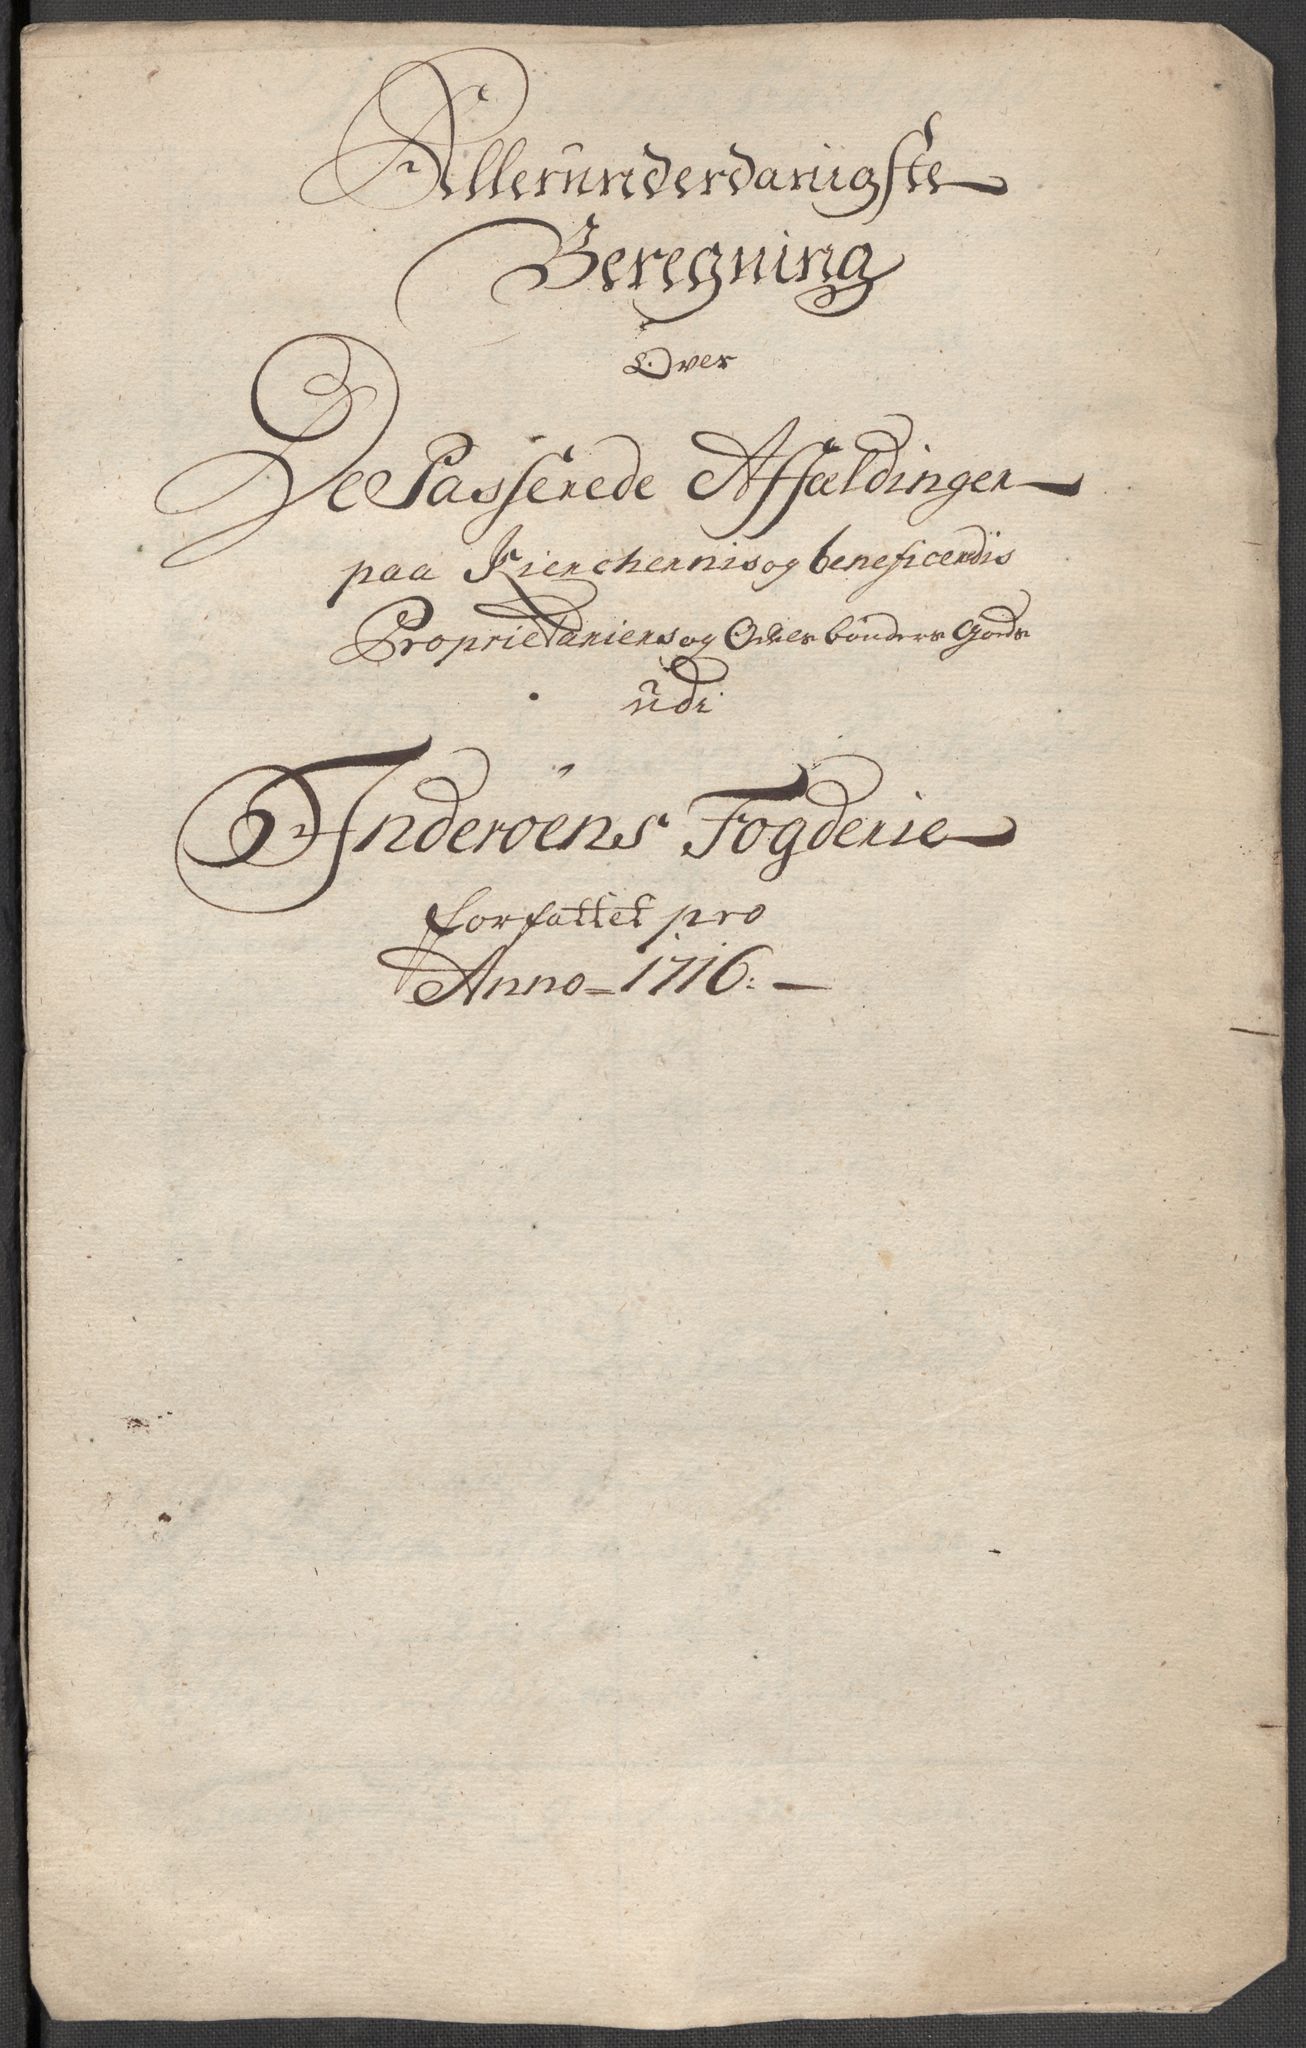 Allerunderdanigste
Beregning
Over
De Passerede Affældinger
paa Kierchernis og beneficerdis
Proprietariers og Odels bønders Gods
udi
Inderøens Fogderie
forfattet pro
Anno = 1716: —